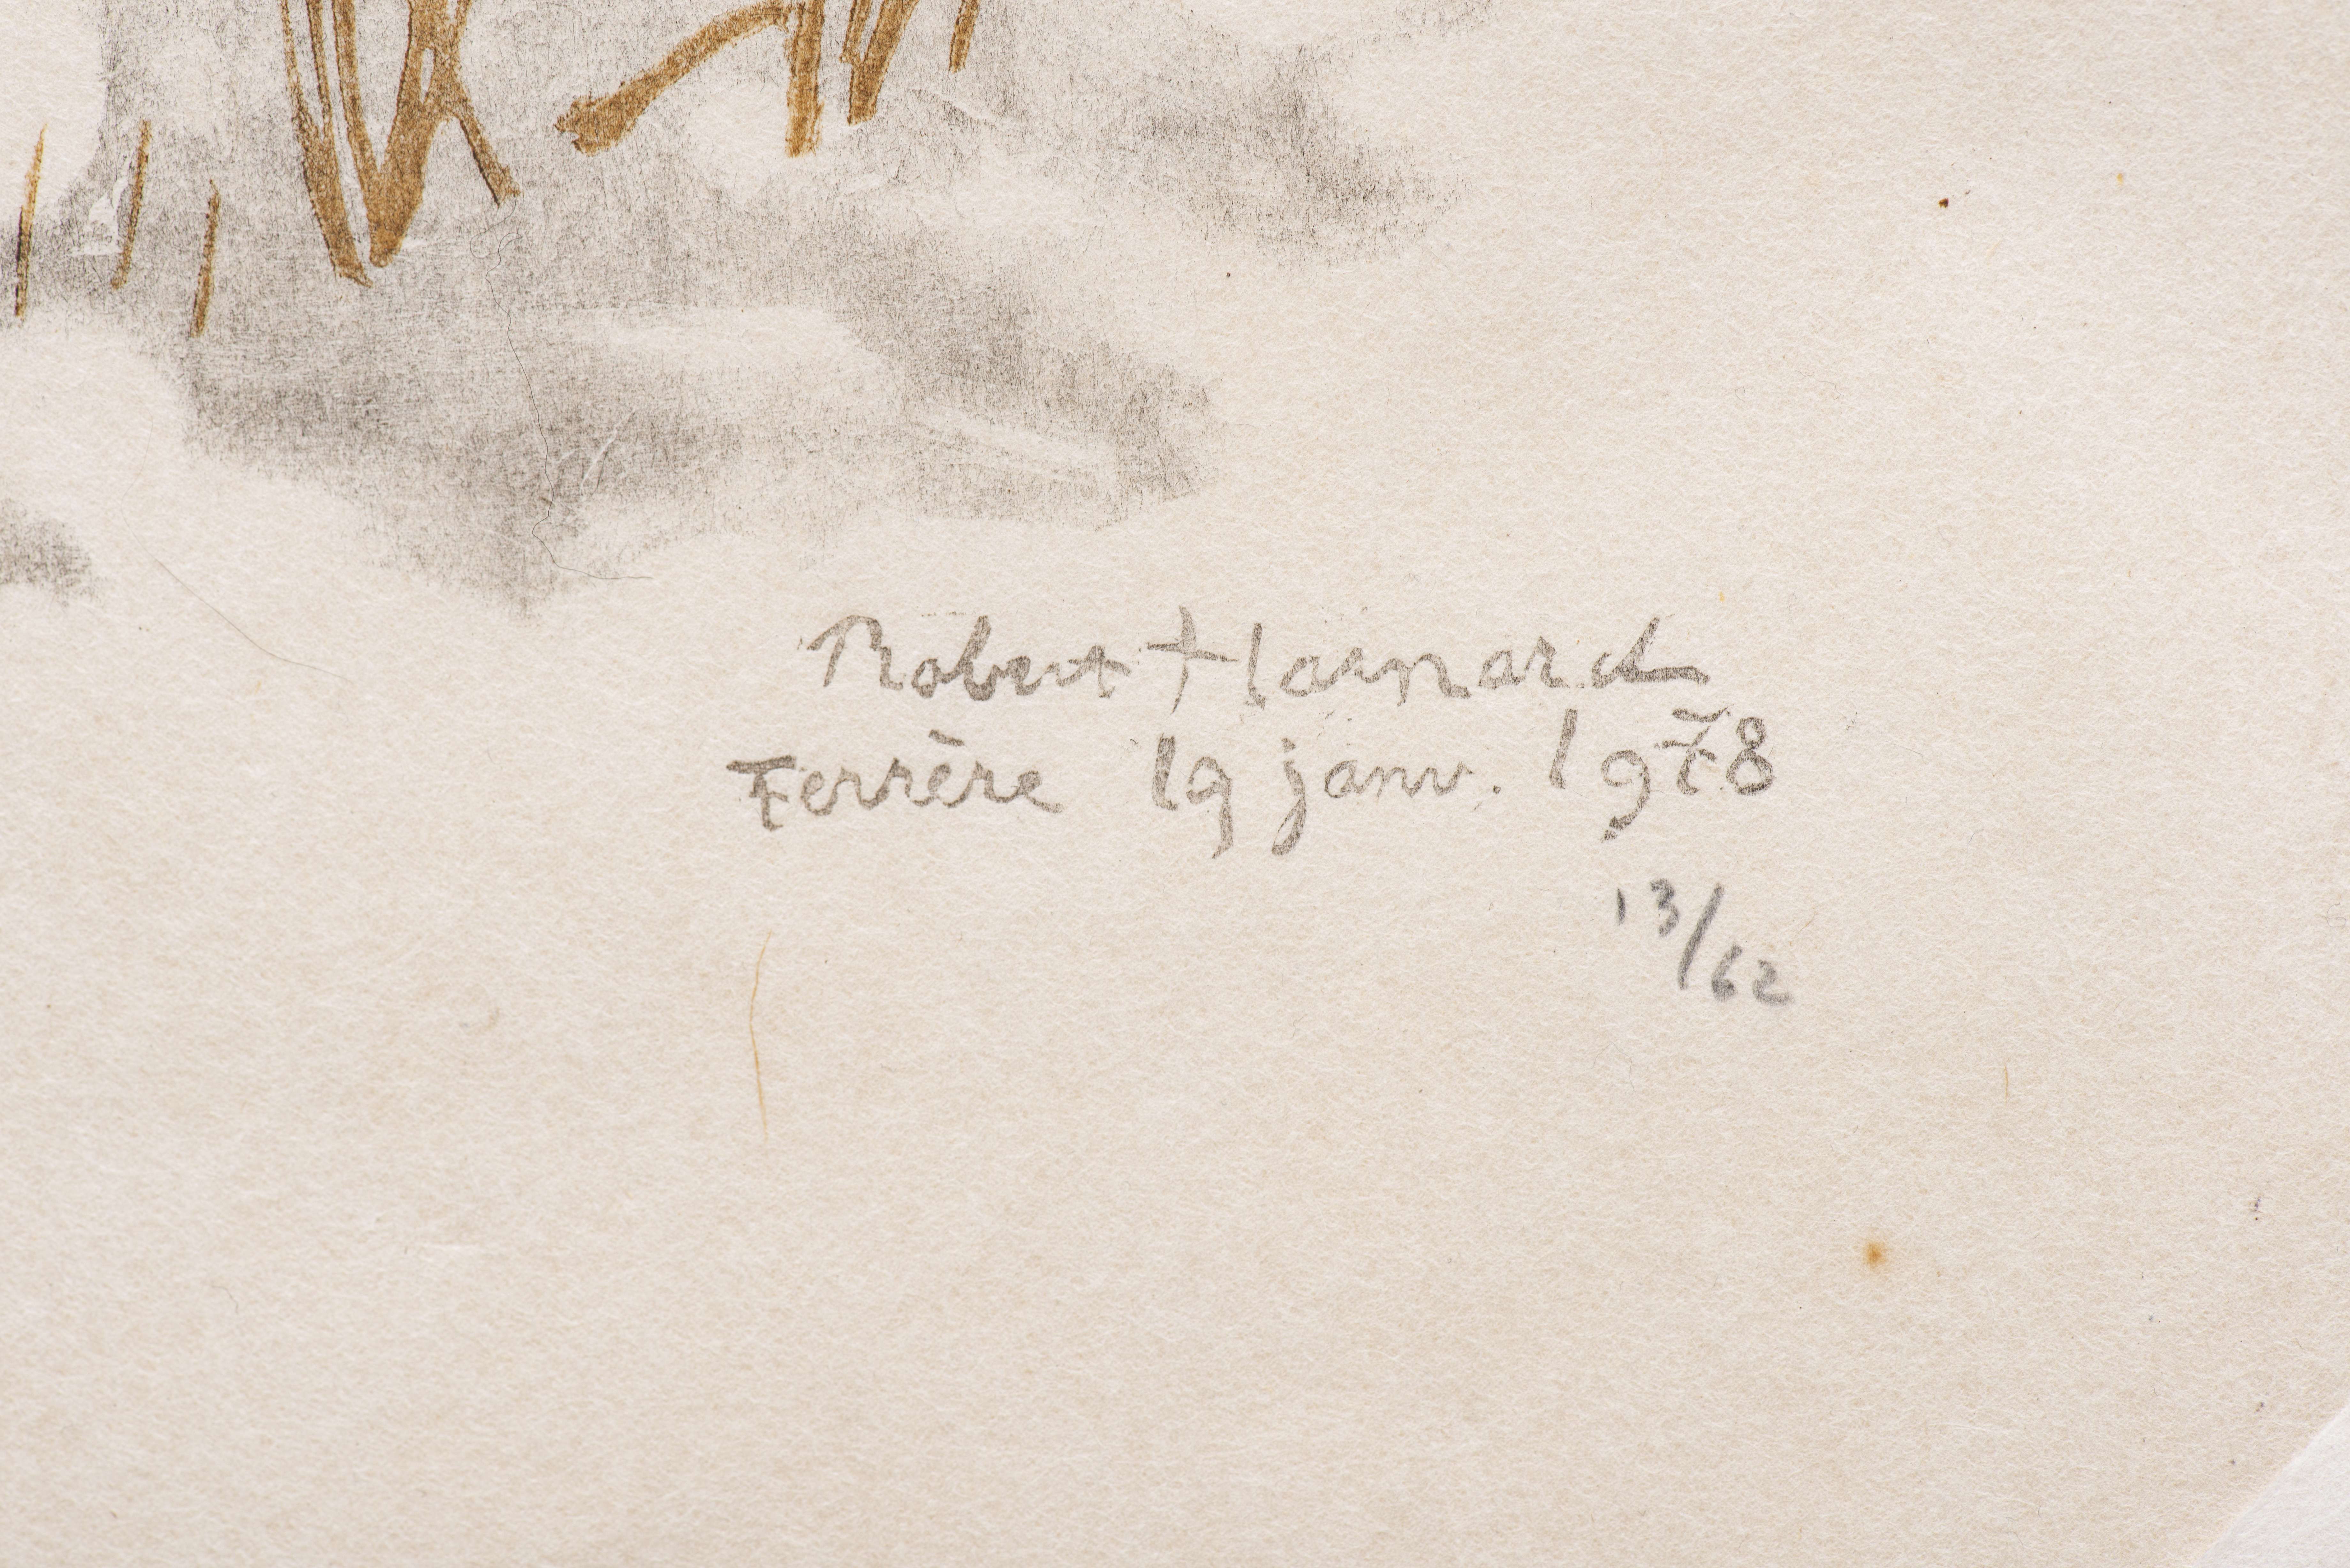 Robert Hainard
Ferrère 19 janv. 1978
13/62